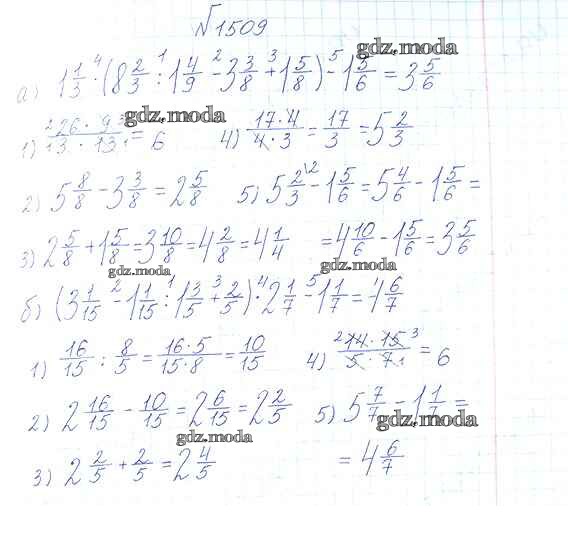 №1509
gdz.moda
а) 1 1/3 · (8 2/3 : 1 4/9 - 3 3/8 + 1 5/8) - 1 5/6 = 3 5/6
gdz.moda
1) 26 · 9 / 13 · 13 = 6 4) 17 · 4 / 4 · 3 = 17/3 = 5 2/3
2) 5 8/8 - 3 3/8 = 2 5/8 5) 5 2/3 - 1 5/6 = 5 4/6 - 1 5/6 =
3) 2 5/8 + 1 5/8 = 3 10/8 = 4 2/8 = 4 1/4 = 4 10/6 - 1 5/6 = 3 5/6
gdz.moda gdz.moda
б) (3 1/15 - 1 1/15 : 1 3/5 + 2/5) · 2 1/7 - 1 1/7 = 4 6/7
gdz.moda
1) 16/15 : 8/5 = 16 · 5 / 15 · 8 = 10/15 4) 14 · 15 / 5 · 7 = 6
2) 2 16/15 - 10/15 = 2 6/15 = 2 2/5 5) 5 7/7 - 1 1/7 =
gdz.moda gdz.moda
3) 2 2/5 + 2/5 = 2 4/5 = 4 6/7